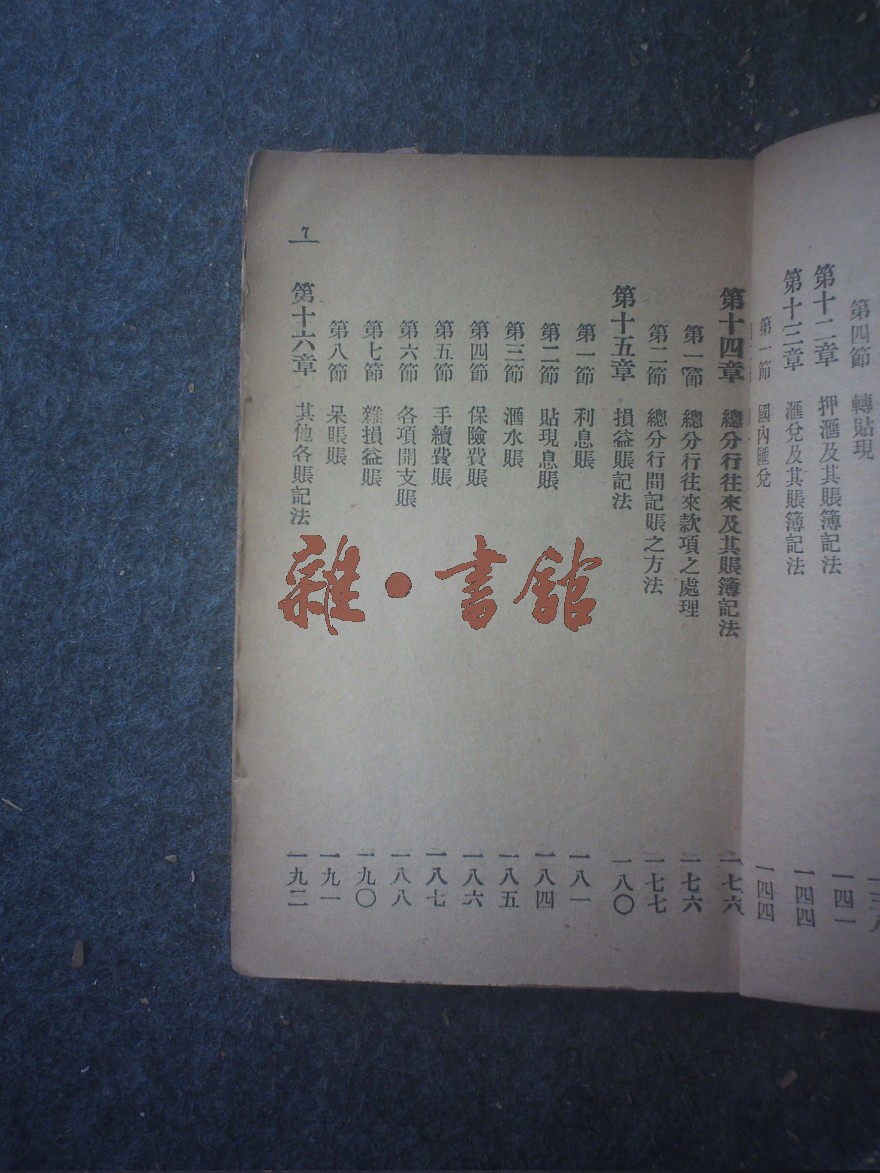 第四節　轉貼現
第十二章　押滙及其賬簿記法　一四一
第十三章　滙兌及其賬簿記法　一四四
第一節　國內匯兌　一四四
第十四章　總分行往來及其賬簿記法　一七六
第一節　總分行往來款項之處理　一七六
第二節　總分行間記賬之方法　一七七
第十五章　損益賬記法　一八〇
第一節　利息賬　一八一
第二節　貼現息賬　一八四
第三節　滙水賬　一八五
第四節　保險費賬　一八六
第五節　手續費賬　一八七
第六節　各項開支賬　一八八
第七節　雜損益賬　一九〇
第八節　呆賬賬　一九一
第十六章　其他各賬記法　一九二
7
雜·書館